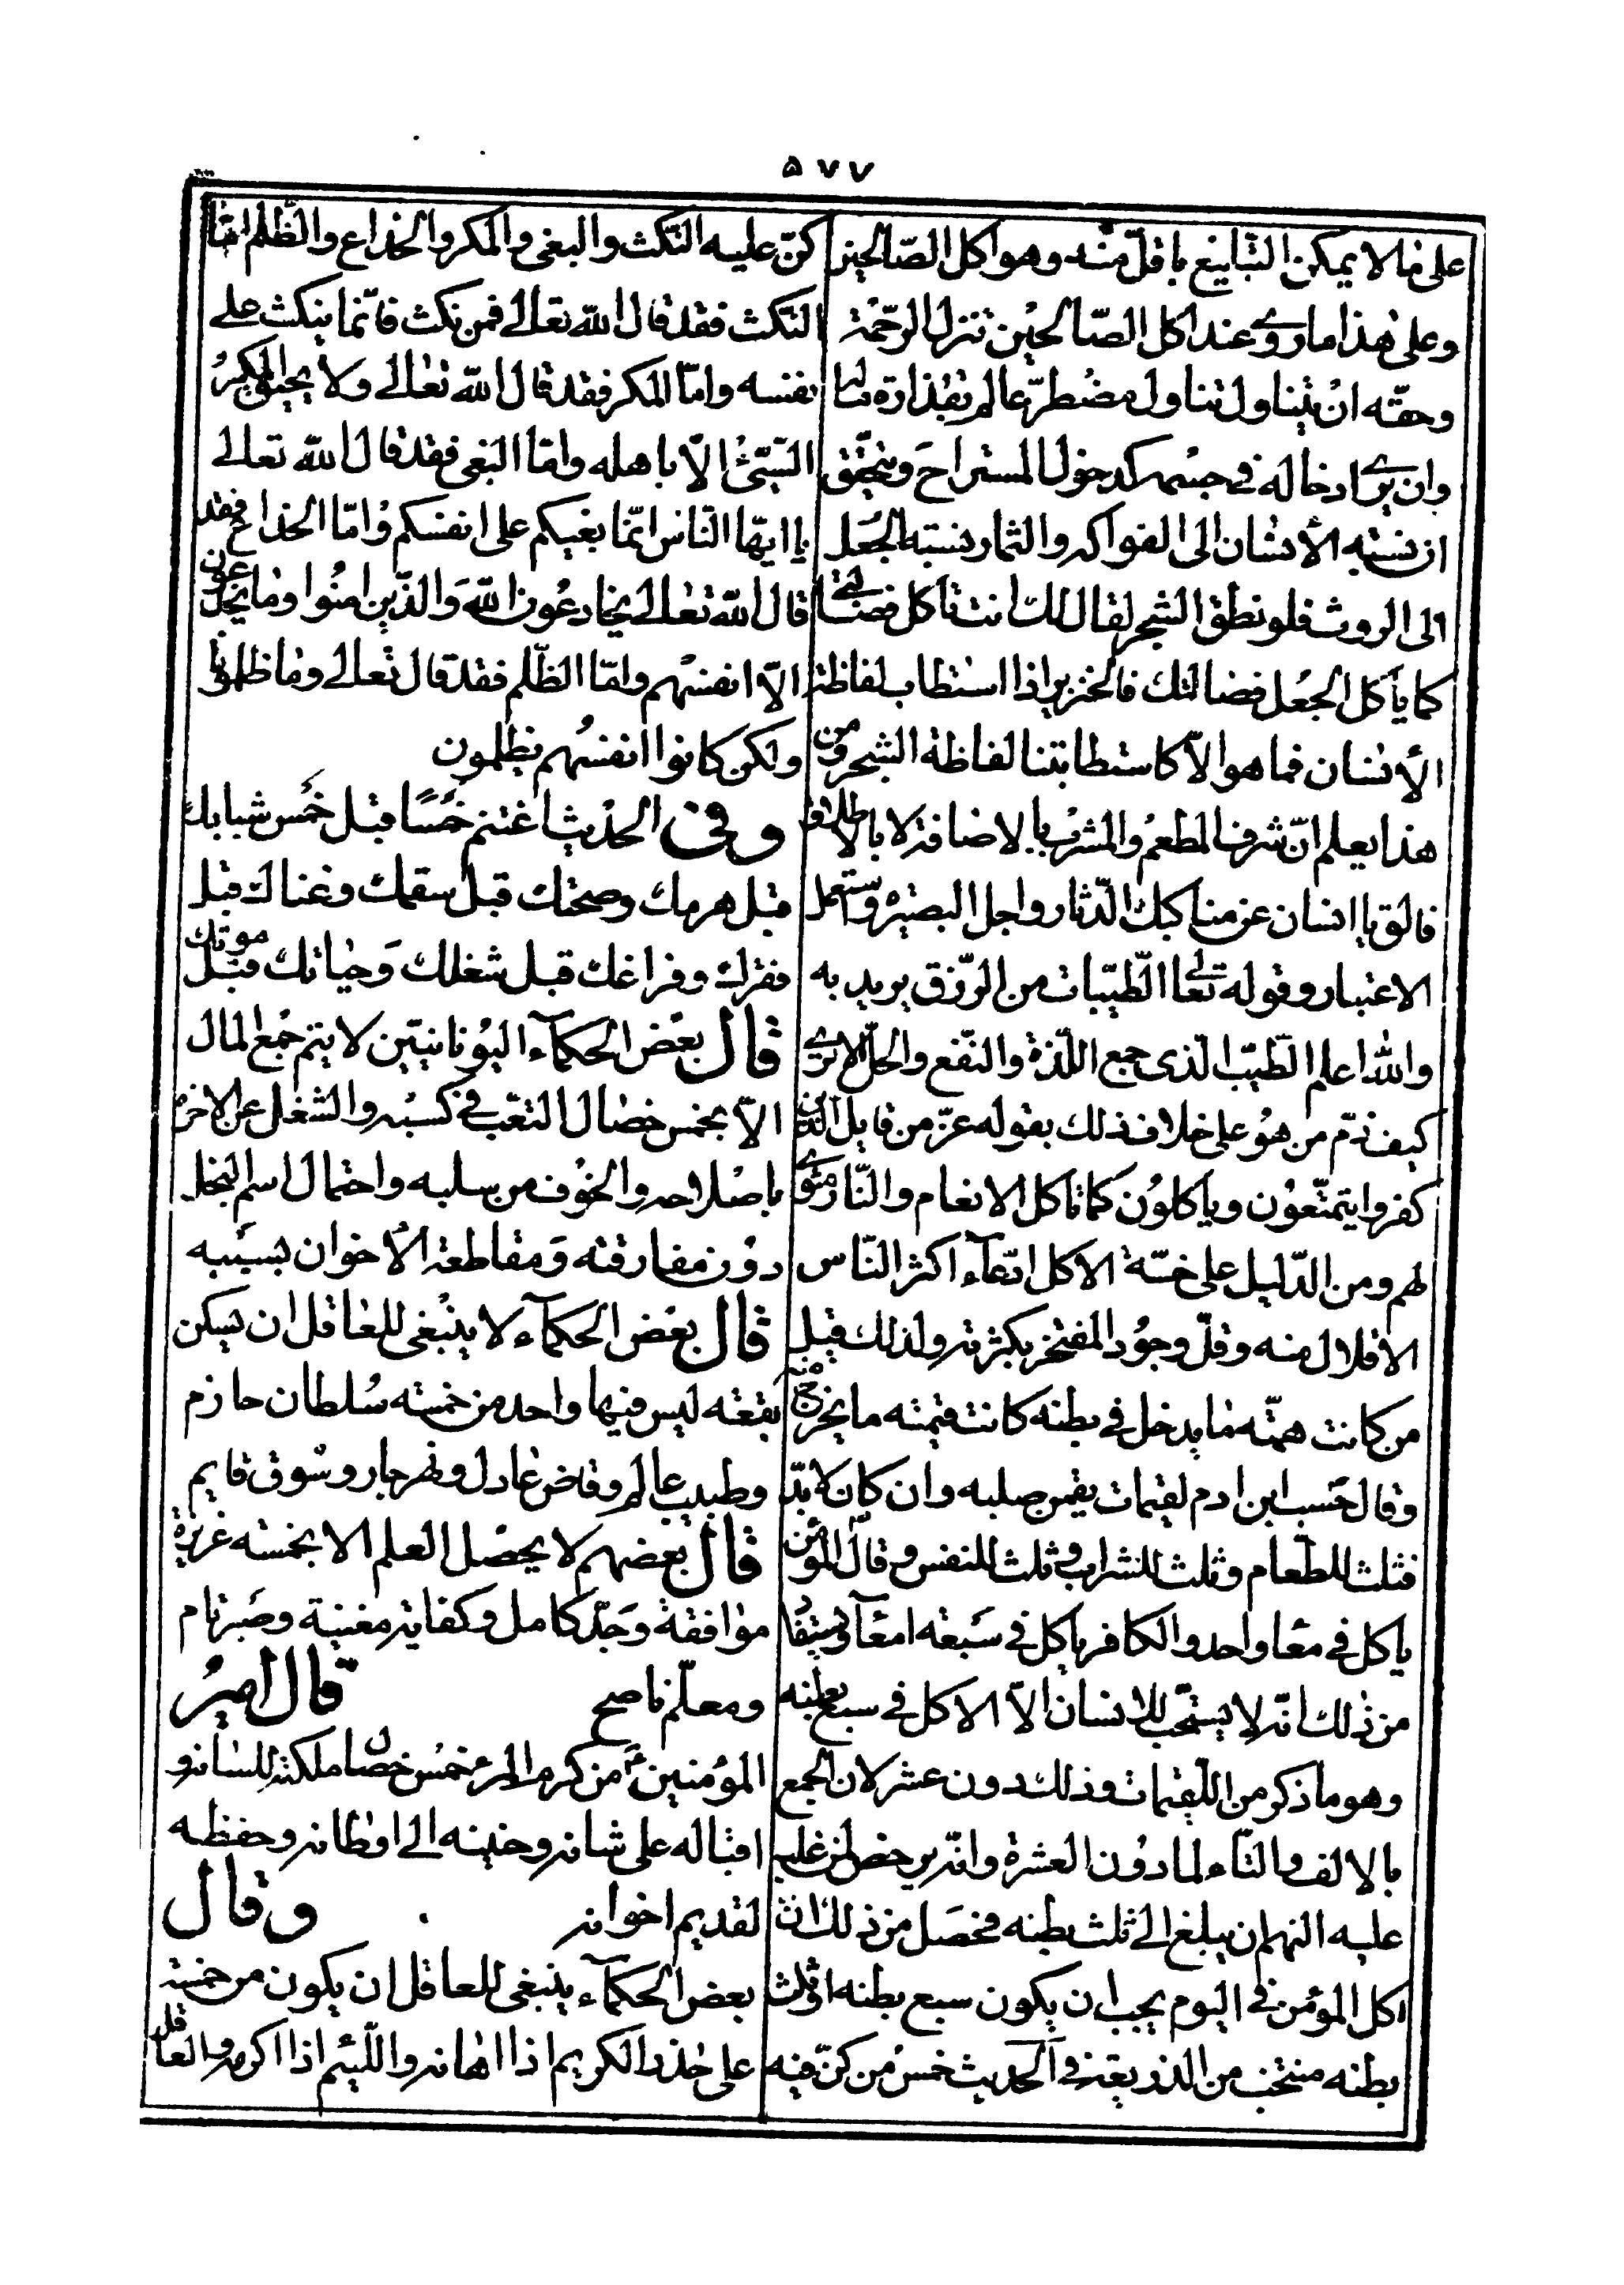 ۵۷۷
على ما لا يمكن التبليغ باقلّ منه وهو اكل الصّالحين
وعلى هذا ما روى عند اكل الصّالحين تنزل الرّحمة
وحقّه ان يتناول تناول مضطرّ عالم بقذارة
وان يرى ادخاله في جسمه كدخول المستراح ويتحقّق
ان نسبته الأنسان الى الفواكه والثمار نسبته الجُعَل
الى الروث فلو نطق الشجر لقال لك انت تأكل
كما يأكل الجُعل فضالتك فالخنزير اذا استطاب لفاظة
الأنسان فما هو الّا كاستطابتنا لفاظة الشجر ومن
هذا يعلم انّ شرف المطعم والمشرب بالاضافة لا بالاطلاق
فالق يا انسان عن مناكبك الدّثار واجل البصيرة واستعمل
الاعتبار وقوله تعالى الطّيّبات من الرّزق يريد به
والله اعلم الطّيّب الّذى جمع اللّذة والنّفع والحلّ الا ترى
كيف ذمّ من هو على خلاف ذلك بقوله عزّ من قايل الّذين
كفروا يتمتّعون ويأكلون كما تأكل الانعام والنّار مثوى
لهم ومن الدّليل على خسّة الاكل ادّعآء اكثر النّاس
الاقلال منه وقلّ وجود المفتخر بكثرته ولذلك قيل
من كانت همّته ما يدخل في بطنه كانت قيمته ما يخرج منه
وقال حسب ابن ادم لقيمات يقمن صلبه وان كان لا بدّ
فثلث للطّعام وثلث للشراب وثلث للنفس وقال المؤمن
ياكل في معا واحد والكافر ياكل في سبعة امعآء
من ذلك انّه لا يستحبّ للانسان الّا الاكل في سبع بطنه
وهو ما ذكر من اللّقيمات وذلك دون عشر لان الجمع
بالالف والتّاء لما دون العشرة وانّه يرخص لمن غلب
عليه النهم ان يبلغ الى ثلث بطنه فحصل من ذلك انّ
اكل المؤمن في اليوم يجب ان يكون سبع بطنه او ثلث
بطنه منتخب من الذريعة في الحديث خمسٌ من كنّ فيه
كنّ عليه النّكث والبغى والمكر والخداع والظّلم امّا
النّكث فقد قال الله تعالى فمن نكث فانّما ينكث على
نفسه وامّا المكر فقد قال الله تعالى ولا يحيق المكرُ
السّيّئُ الّا باهله وامّا البغى فقد قال الله تعالى
يا ايّها النّاس انّما بغيكم على انفسكم وامّا الخداع فقد
قال الله تعالى يخادعون الله والّذين امنوا وما يخدعون
الّا انفسهم وامّا الظّلم فقد قال تعالى وما ظلمونا
ولكن كانوا انفسهم يظلمون
وفى الحديث اغتنم خمسًا قبل خمس شبابك
قبل هرمك وصحتك قبل سقمك وغناك قبل
فقرك وفراغك قبل شغلك وحياتك قبل موتك
قال بعض الحكمآء اليونانيّين لا يتم جمع المال
الّا بخمس خصال التعب في كسبه والشغل عن الاخرة
باصلاحه والخوف من سلبه واحتمال اسم البخل
دون مفارقته ومقاطعة الأخوان بسببه
قال بعض الحكمآء لا ينبغى للعاقل ان يسكن
بقعة ليس فيها واحد من خمسة سُلطان حازم
وطبيب عالم وقاض عادل ونهر جار وسوق قايم
قال بعضهم لا يحصل العلم الا بخمسة غريزة
موافقة وجدّ كامل وكفاية مغنية وصبر تام
ومعلّم ناصح قال امير
المؤمنين من كرم المرء خمس خصال ملكته للسانه و
اقباله على شانه وحنينه الى اوطانه وحفظه
لقديم اخوانه وقال
بعض الحكمآء ينبغى للعاقل ان يكون من خمسة
على حذر الكريم اذا اهانه واللّئيم اذا اكرمه والعاقل